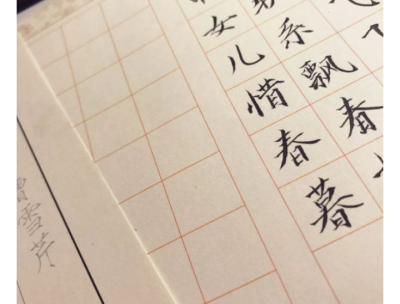 系飘春
女儿惜春暮
曹雪芹